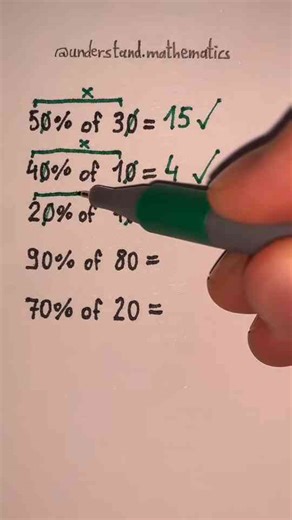 @understand.mathematics
x
50% of 30 = 15 ✓
x
40% of 10 = 4 ✓
20% of
90% of 80 =
70% of 20 =